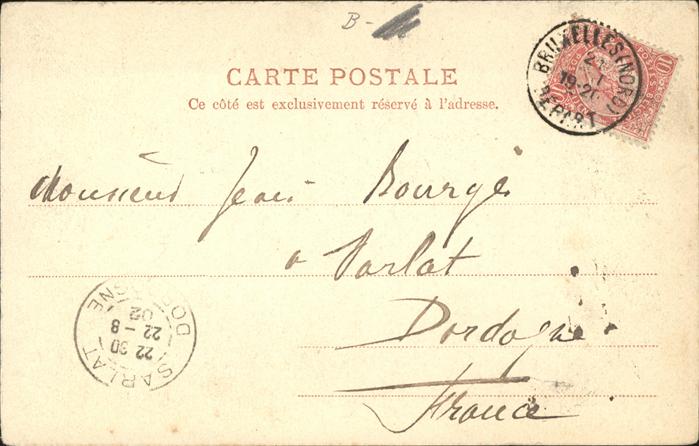 B-
CARTE POSTALE
Ce côté est exclusivement réservé à l'adresse.
BRUXELLES (NORD)
19-20
DEPART
10
10
Monsieur Jean Bourgé
a Sarlat
Dordogne
France
SARLAT
22 30
22 - 8
02
DORDOGNE